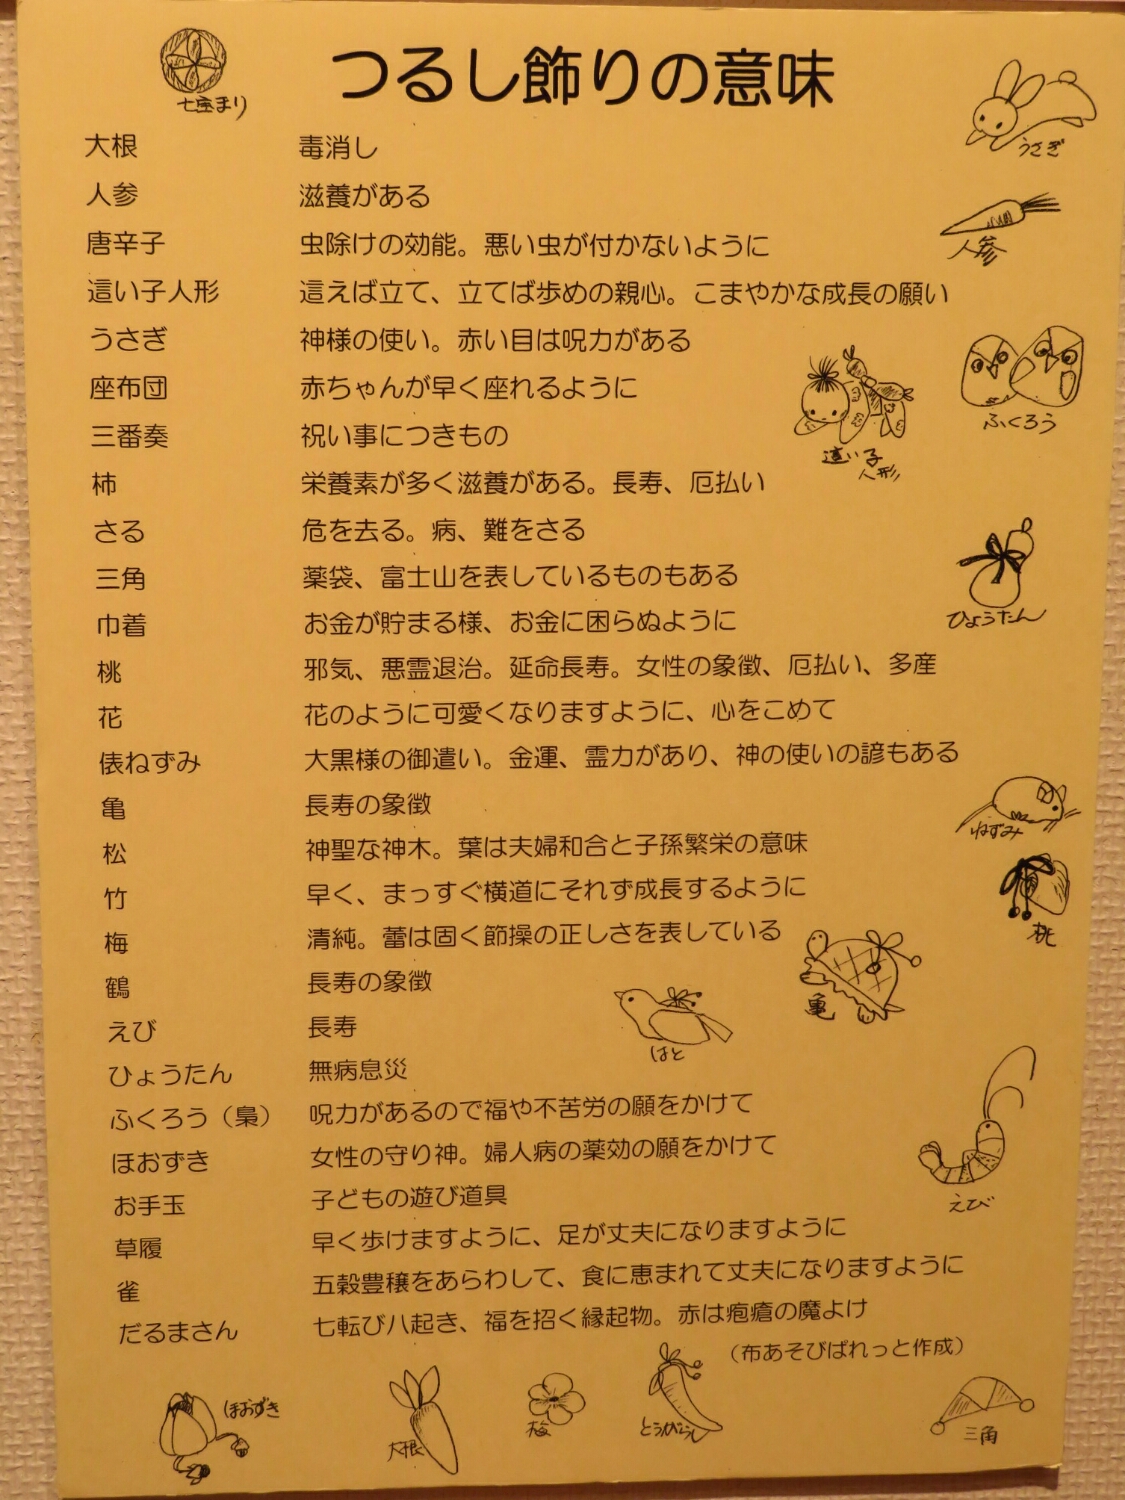 つるし飾りの意味
七宝まり
うさぎ
大根 毒消し
人参 滋養がある
人参
唐辛子 虫除けの効能。悪い虫が付かないように
這い子人形 這えば立て、立てば歩めの親心。こまやかな成長の願い
うさぎ 神様の使い。赤い目は呪力がある
座布団 赤ちゃんが早く座れるように
ふくろう
三番奏 祝い事につきもの
這い子
人形
柿 栄養素が多く滋養がある。長寿、厄払い
さる 危を去る。病、難をさる
三角 薬袋、富士山を表しているものもある
巾着 お金が貯まる様、お金に困らぬように
ひょうたん
桃 邪気、悪霊退治。延命長寿。女性の象徴、厄払い、多産
花 花のように可愛くなりますように、心をこめて
俵ねずみ 大黒様の御遣い。金運、霊力があり、神の使いの諺もある
亀 長寿の象徴
ねずみ
松 神聖な神木。葉は夫婦和合と子孫繁栄の意味
竹 早く、まっすぐ横道にそれず成長するように
梅 清純。蕾は固く節操の正しさを表している
桃
鶴 長寿の象徴
亀
えび 長寿
はと
ひょうたん 無病息災
ふくろう（梟） 呪力があるので福や不苦労の願をかけて
ほおずき 女性の守り神。婦人病の薬効の願をかけて
お手玉 子どもの遊び道具
えび
草履 早く歩けますように、足が丈夫になりますように
雀 五穀豊穣をあらわして、食に恵まれて丈夫になりますように
だるまさん 七転び八起き、福を招く縁起物。赤は疱瘡の魔よけ
（布あそびぱれっと作成）
ほおずき
大根
梅
とうがらし
三角